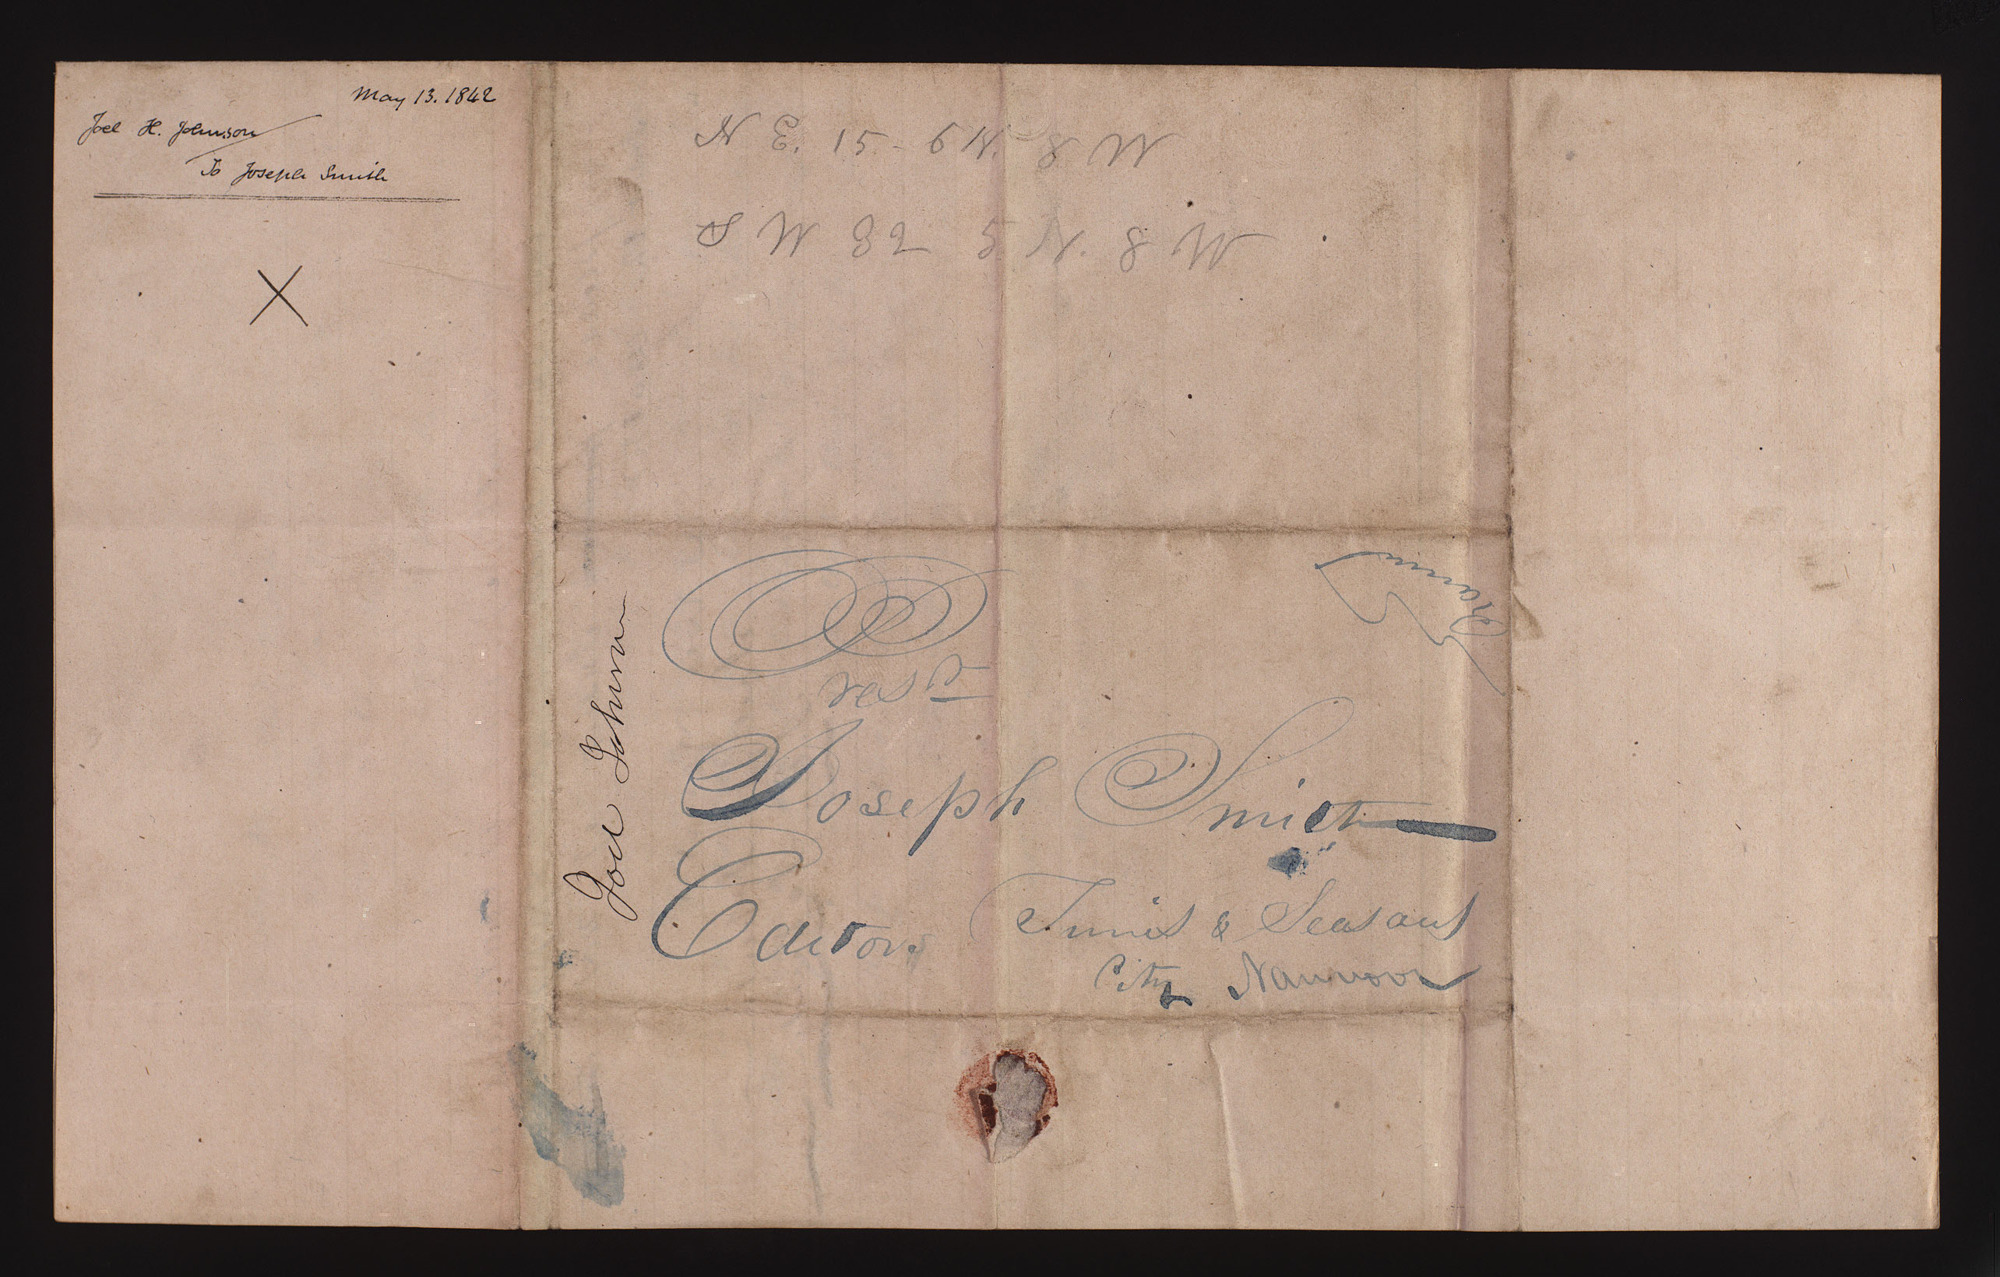 May 13. 1842
Joel H. Johnson
To Joseph Smith
X
N E. 15 - 6 N. 8 W
S W 32 5 N. 8 W
Joel Johnson
Ramus
Presdt
Joseph Smith
Editor Times & Seasons
City Nauvoo